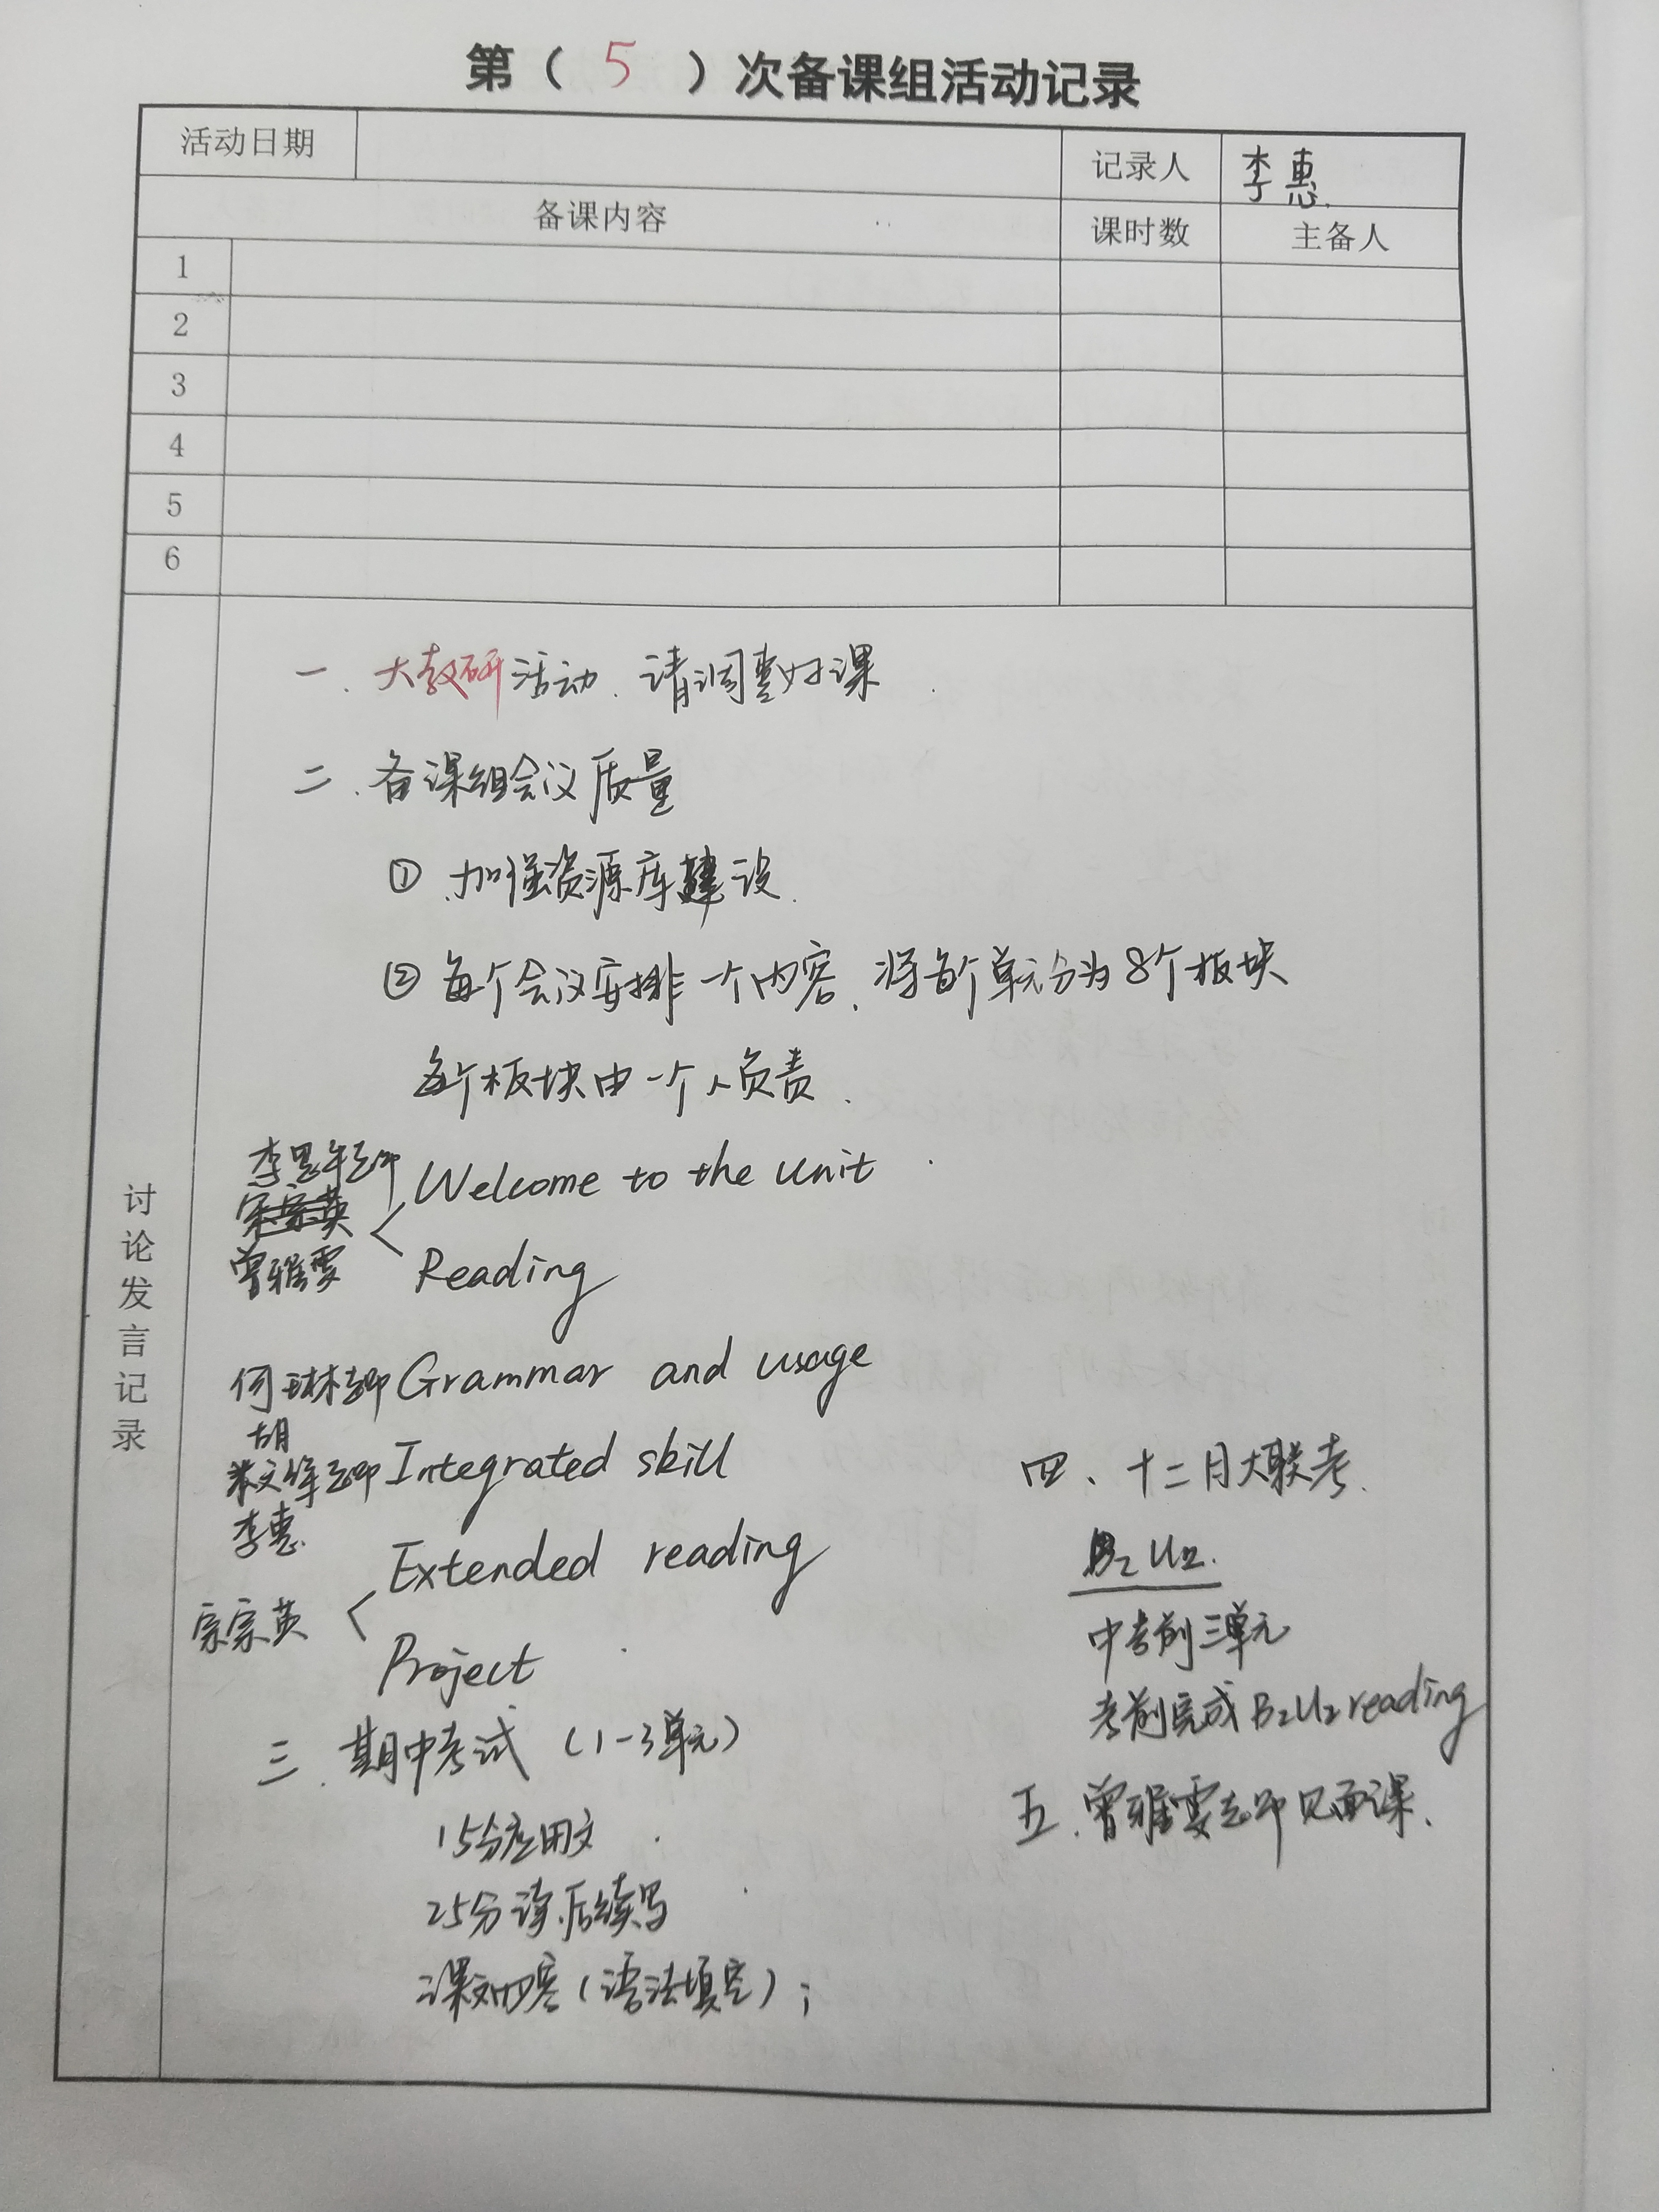 第（ 5 ）次备课组活动记录
活动日期
记录人 李惠.
备课内容 课时数 主备人
1
2
3
4
5
6
讨论发言记录
一. 大教研活动. 请调整好课
二. 备课组会议质量
① 加强资源库建设.
② 每个会议安排一个内容. 将每个单元分为8个板块
每个板块由一个人负责.
李思 Welcome to the unit
曾雅雯 Reading
何琳老师 Grammar and usage
胡
文 老师 Integrated skill
李惠.
Extended reading
宗宗英
Project
三. 期中考试（1-3单元）
15分应用文
25分读后续写
课文内容（语法填空）;
四、十二月大联考.
B2 U2.
中考前三单元
考前完成B2U2 reading
五. 曾雅雯老师见面课.